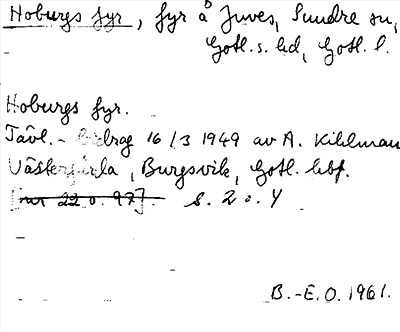 Hoburgs fyr, fyr å Juves, Sundre sn,
Gotl. s. hd, Gotl. l.
Hoburgs fyr.
Tävl.-bidrag 16/3 1949 av A. Kihlman
Västergårda, Burgsvik, Gotl. hbf.
[nr 22 o. 97]. s. 2 o. 4
B.-E.O. 1961.